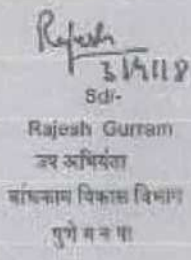 Rajesh
3/9/18
Sd/-
Rajesh Gurram
उप अभियंता
बांधकाम विकास विभाग
पुणे म न पा